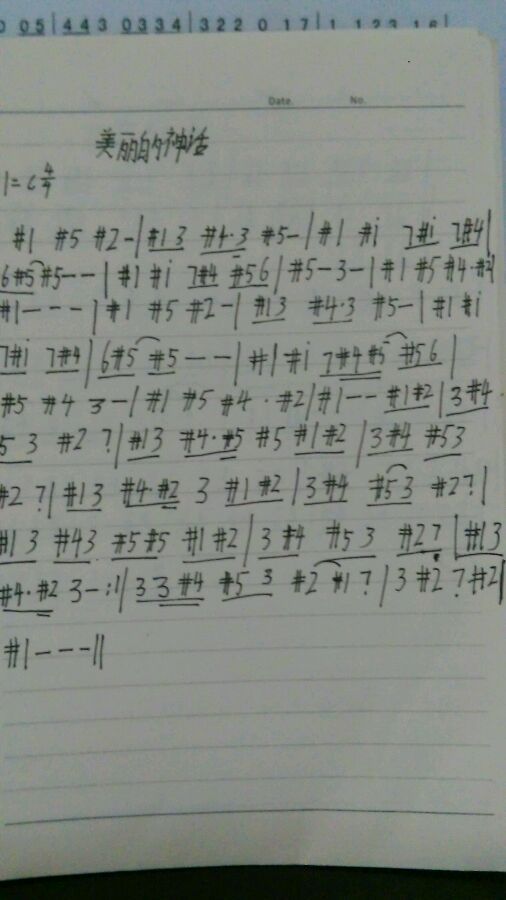 0 05|443 0334|322 0 17|1 123 16|
Date. No.
美丽的神话
1=C 4/4
#1 #5 #2-|#13 #4·3 #5-|#1 #i 7#i 7#4|
6#5 #5--|#1 #i 7#4 #56|#5-3-|#1 #5 #4·#2|
#1---|#1 #5 #2-|#13 #4·3 #5-|#1 #i
7#i 7#4|6#5 #5--|#1 #i 7#4#5 #56|
#5 #4 3-|#1 #5 #4·#2|#1--#1#2|3#4
53 #2 ?|#13 #4·#5 #5 #1#2|3#4 #53
#2 ?|#13 #4·#2 3 #1#2|3#4 #53 #2?|
#13 #43 #5#5 #1#2|3#4 #53 #2?|#13
#4·#2 3-:||33#4 #53 #2#1?|3#2?#2|
#1---||